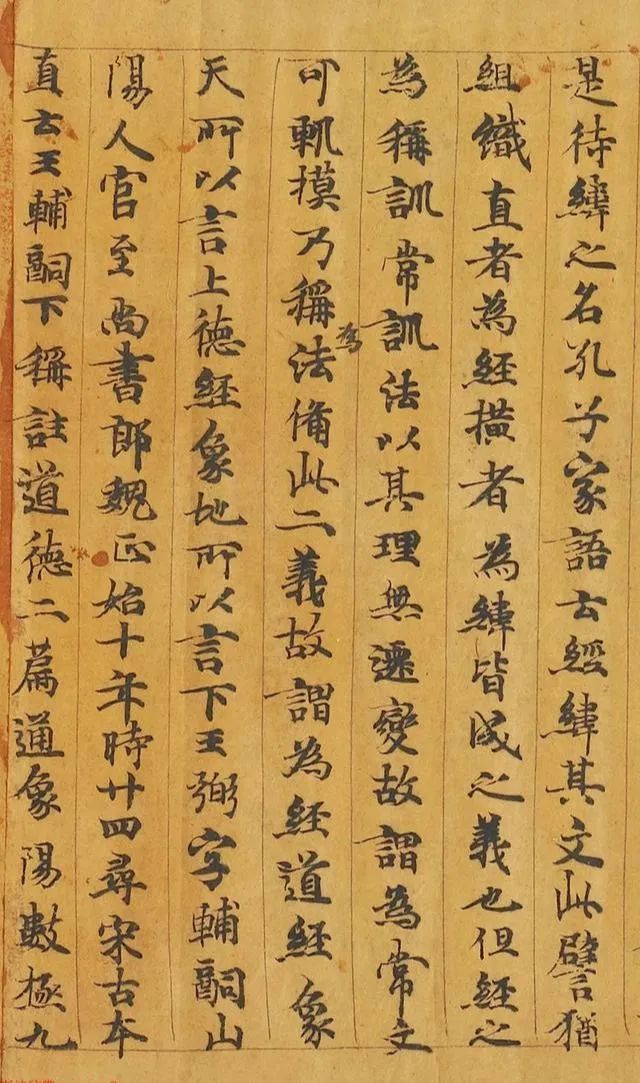 是待緯之名孔子家語云經緯其文此譬猶
組織直者為經橫者為緯皆成之義也但經之
為稱訓常訓法以其理無遷變故謂為常文
可軌摸乃稱為法脩此二義故謂為經道經象
天所以言上德經象地所以言下王弼字輔嗣山
陽人官至尚書郎魏正始十年時廿四尋宋古本
直云王輔嗣下稱註道德二篇通象陽數極九